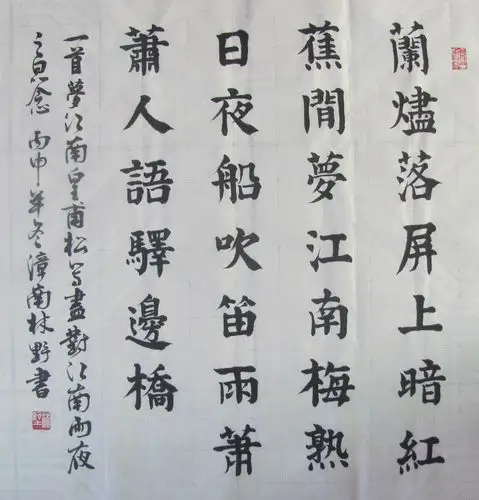 蘭燼落屏上暗紅
蕉閒夢江南梅熟
日夜船吹笛雨蕭
蕭人語驛邊橋
一首夢江南皇甫松寫盡對江南雨夜
之思念 丙申年冬漳南林野書